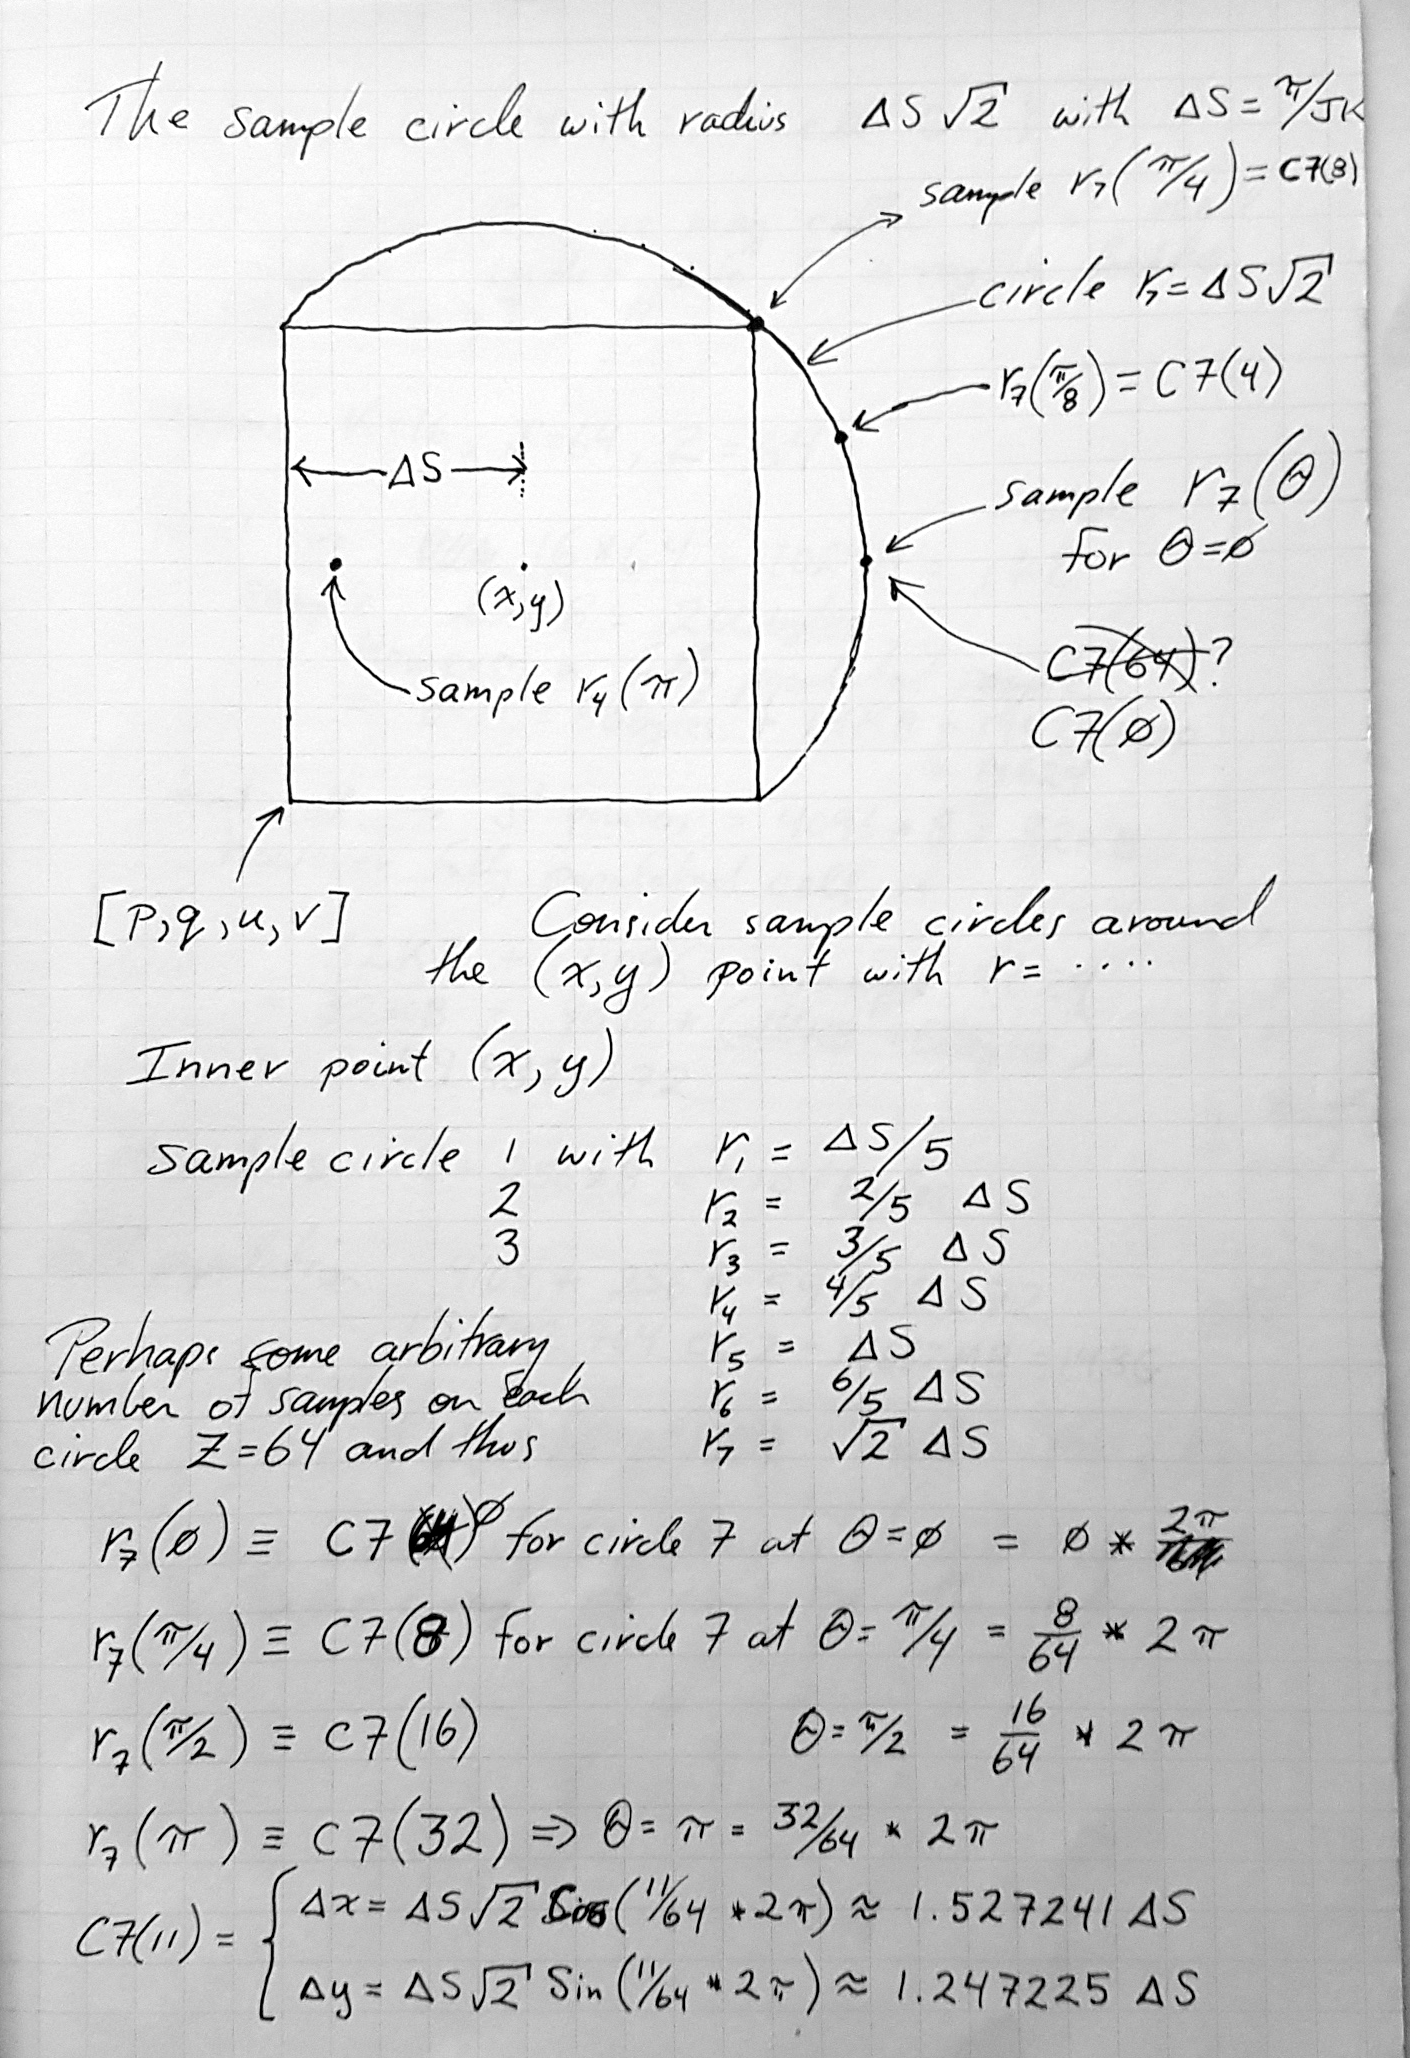 The sample circle with radius ΔS√2 with ΔS = π/JK
sample r₇(π/4) = C7(8)
circle r₇ = ΔS√2
r₇(π/8) = C7(4)
ΔS
sample r₇(Θ)
for Θ=ø
(x,y)
C7(64)?
sample r₄(π)
C7(ø)
[p,q,u,v]
Consider sample circles around
the (x,y) point with r = ....
Inner point (x,y)
sample circle 1 with r₁ = ΔS/5
2 r₂ = 2/5 ΔS
3 r₃ = 3/5 ΔS
r₄ = 4/5 ΔS
r₅ = ΔS
r₆ = 6/5 ΔS
r₇ = √2 ΔS
Perhaps some arbitrary
number of samples on each
circle Z=64 and thus
r₇(ø) ≡ C7(ø for circle 7 at Θ=ø = ø * 2π
r₇(π/4) ≡ C7(8) for circle 7 at Θ= π/4 = 8/64 * 2π
r₇(π/2) ≡ C7(16) Θ= π/2 = 16/64 * 2π
r₇(π) ≡ C7(32) ⇒ Θ= π = 32/64 * 2π
C7(11) = { Δx = ΔS√2 Cos(11/64 * 2π) ≈ 1.527241 ΔS
Δy = ΔS√2 Sin(11/64 * 2π) ≈ 1.247225 ΔS